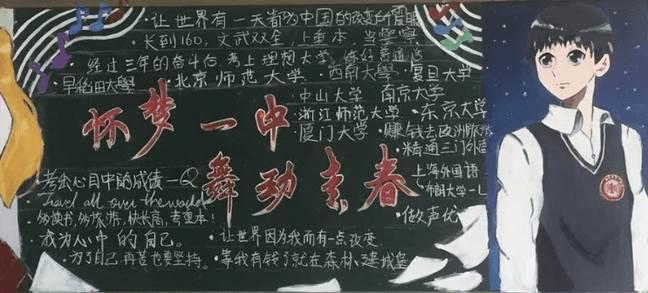 ·让世界有一天都为中国的改变而震撼
·长到160，文武双全，上重本，当警察
·经过三年的奋斗后考上理想大学·练好普通话
·早稻田大學 ·北京师范大学 ·西南大学·复旦大学
中山大学 南京大学
·浙江师范大学·东京大学
厦门大学·赚钱去欧洲旅游
·精通三门外语
怀梦一中
舞动青春
上海外国语
·做声优
·考出心目中的成绩—Q
·travel all over the world
多读书，多炼炼，快长高，考重本！
·成为心中的自己。
·让世界因为我而有一点改变
·为了自己再苦也要坚持。
·等我有钱了就在森林建城堡